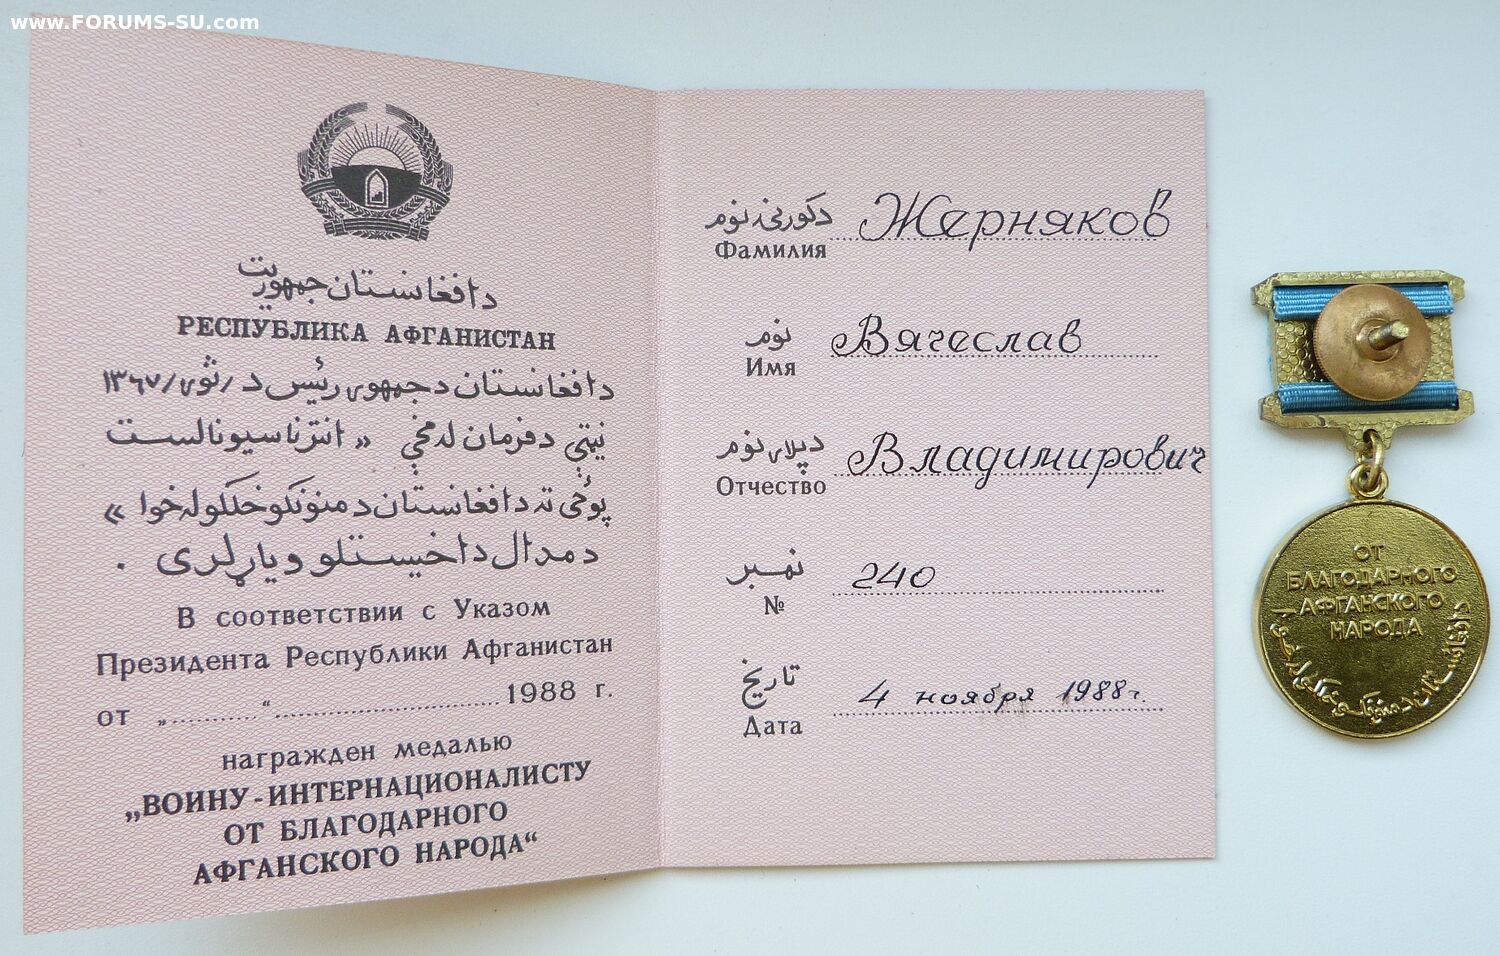 www.FORUMS-SU.com
دافغانستان جمهوریت
РЕСПУБЛИКА АФГАНИСТАН
دافغانستان دجمهوری رئیس د / ثور / ۱۳۶۷
نیټې دفرمان له مخې « انترناسیونالست
پوځي ته دافغانستان دمنونکو خلکو له خوا »
دمدال داخیستلو ویاړ لری .
В соответствии с Указом
Президента Республики Афганистан
от „............“.............................. 1988 г.
награжден медалью
„ВОИНУ-ИНТЕРНАЦИОНАЛИСТУ
ОТ БЛАГОДАРНОГО
АФГАНСКОГО НАРОДА“
دکورنۍ نوم Жерняков
Фамилия
نوم Вячеслав
Имя
دپلار نوم Владимирович
Отчество
نمبر 240
№
تاریخ 4 ноября 1988г.
Дата
ОТ
БЛАГОДАРНОГО
АФГАНСКОГО
НАРОДА